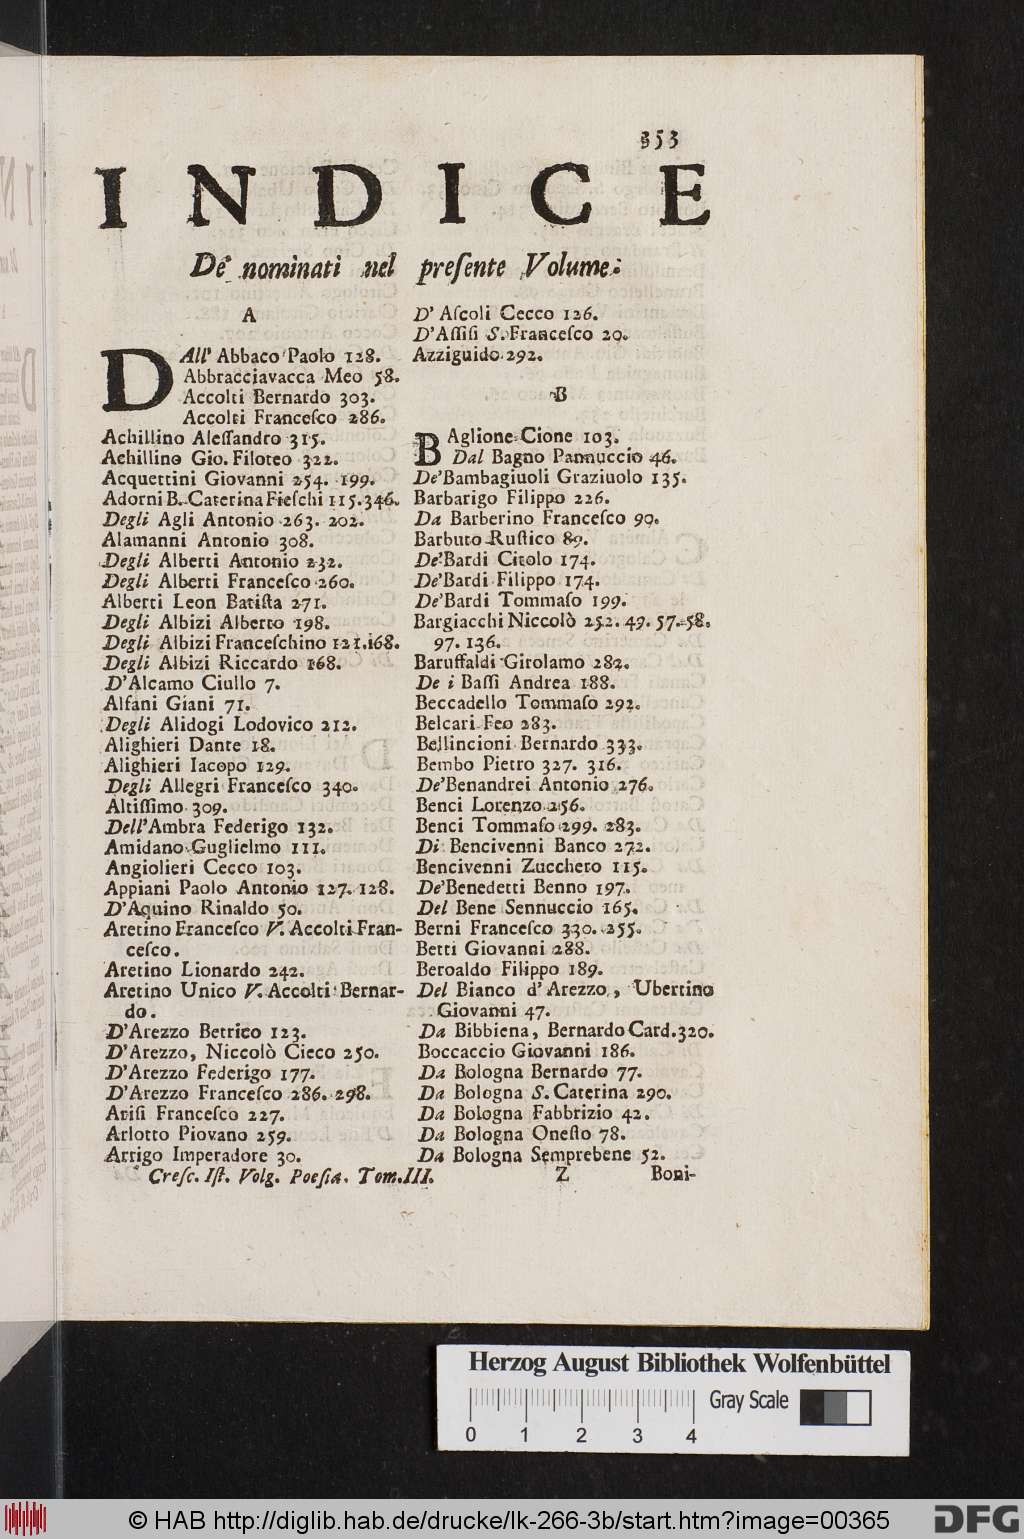 353
INDICE
De' nominati nel preſente Volume.
A
DAll' Abbaco Paolo 128.
Abbracciavacca Meo 58.
Accolti Bernardo 303.
Accolti Franceſco 286.
Achillino Aleſſandro 315.
Achillino Gio. Filoteo 322.
Acquettini Giovanni 254. 199.
Adorni B. Caterina Fieſchi 115.346.
Degli Agli Antonio 263. 202.
Alamanni Antonio 308.
Degli Alberti Antonio 232.
Degli Alberti Franceſco 260.
Alberti Leon Batiſta 271.
Degli Albizi Alberto 198.
Degli Albizi Franceſchino 121.168.
Degli Albizi Riccardo 168.
D'Alcamo Ciullo 7.
Alfani Giani 71.
Degli Alidogi Lodovico 212.
Alighieri Dante 18.
Alighieri Iacopo 129.
Degli Allegri Franceſco 340.
Altiſſimo 309.
Dell'Ambra Federigo 132.
Amidano Guglielmo 111.
Angiolieri Cecco 103.
Appiani Paolo Antonio 127. 128.
D'Aquino Rinaldo 50.
Aretino Franceſco V. Accolti Fran-
ceſco.
Aretino Lionardo 242.
Aretino Unico V. Accolti Bernar-
do.
D'Arezzo Betrico 123.
D'Arezzo, Niccolò Cieco 250.
D'Arezzo Federigo 177.
D'Arezzo Franceſco 286. 298.
Ariſi Franceſco 227.
Arlotto Piovano 259.
Arrigo Imperadore 30.
D' Aſcoli Cecco 126.
D'Aſſiſi S. Franceſco 20.
Azziguido 292.
B
BAglione Cione 103.
Dal Bagno Pannuccio 46.
De'Bambagiuoli Graziuolo 135.
Barbarigo Filippo 226.
Da Barberino Franceſco 90.
Barbuto Ruſtico 89.
De'Bardi Citolo 174.
De'Bardi Filippo 174.
De'Bardi Tommaſo 199.
Bargiacchi Niccolò 252. 49. 57. 58.
97. 136.
Baruffaldi Girolamo 282.
De i Baſſi Andrea 188.
Beccadello Tommaſo 292.
Belcari Feo 283.
Bellincioni Bernardo 333.
Bembo Pietro 327. 316.
De'Benandrei Antonio 276.
Benci Lorenzo 256.
Benci Tommaſo 299. 283.
Di Bencivenni Banco 272.
Bencivenni Zucchero 115.
De'Benedetti Benno 197.
Del Bene Sennuccio 165.
Berni Franceſco 330. 255.
Betti Giovanni 288.
Beroaldo Filippo 189.
Del Bianco d' Arezzo, Ubertino
Giovanni 47.
Da Bibbiena, Bernardo Card.320.
Boccaccio Giovanni 186.
Da Bologna Bernardo 77.
Da Bologna S. Caterina 290.
Da Bologna Fabbrizio 42.
Da Bologna Oneſto 78.
Da Bologna Semprebene 52.
Creſc. Iſt. Volg. Poeſia. Tom.III. Z Boni-
Herzog August Bibliothek Wolfenbüttel
Gray Scale
0 1 2 3 4
© HAB http://diglib.hab.de/drucke/lk-266-3b/start.htm?image=00365
DFG